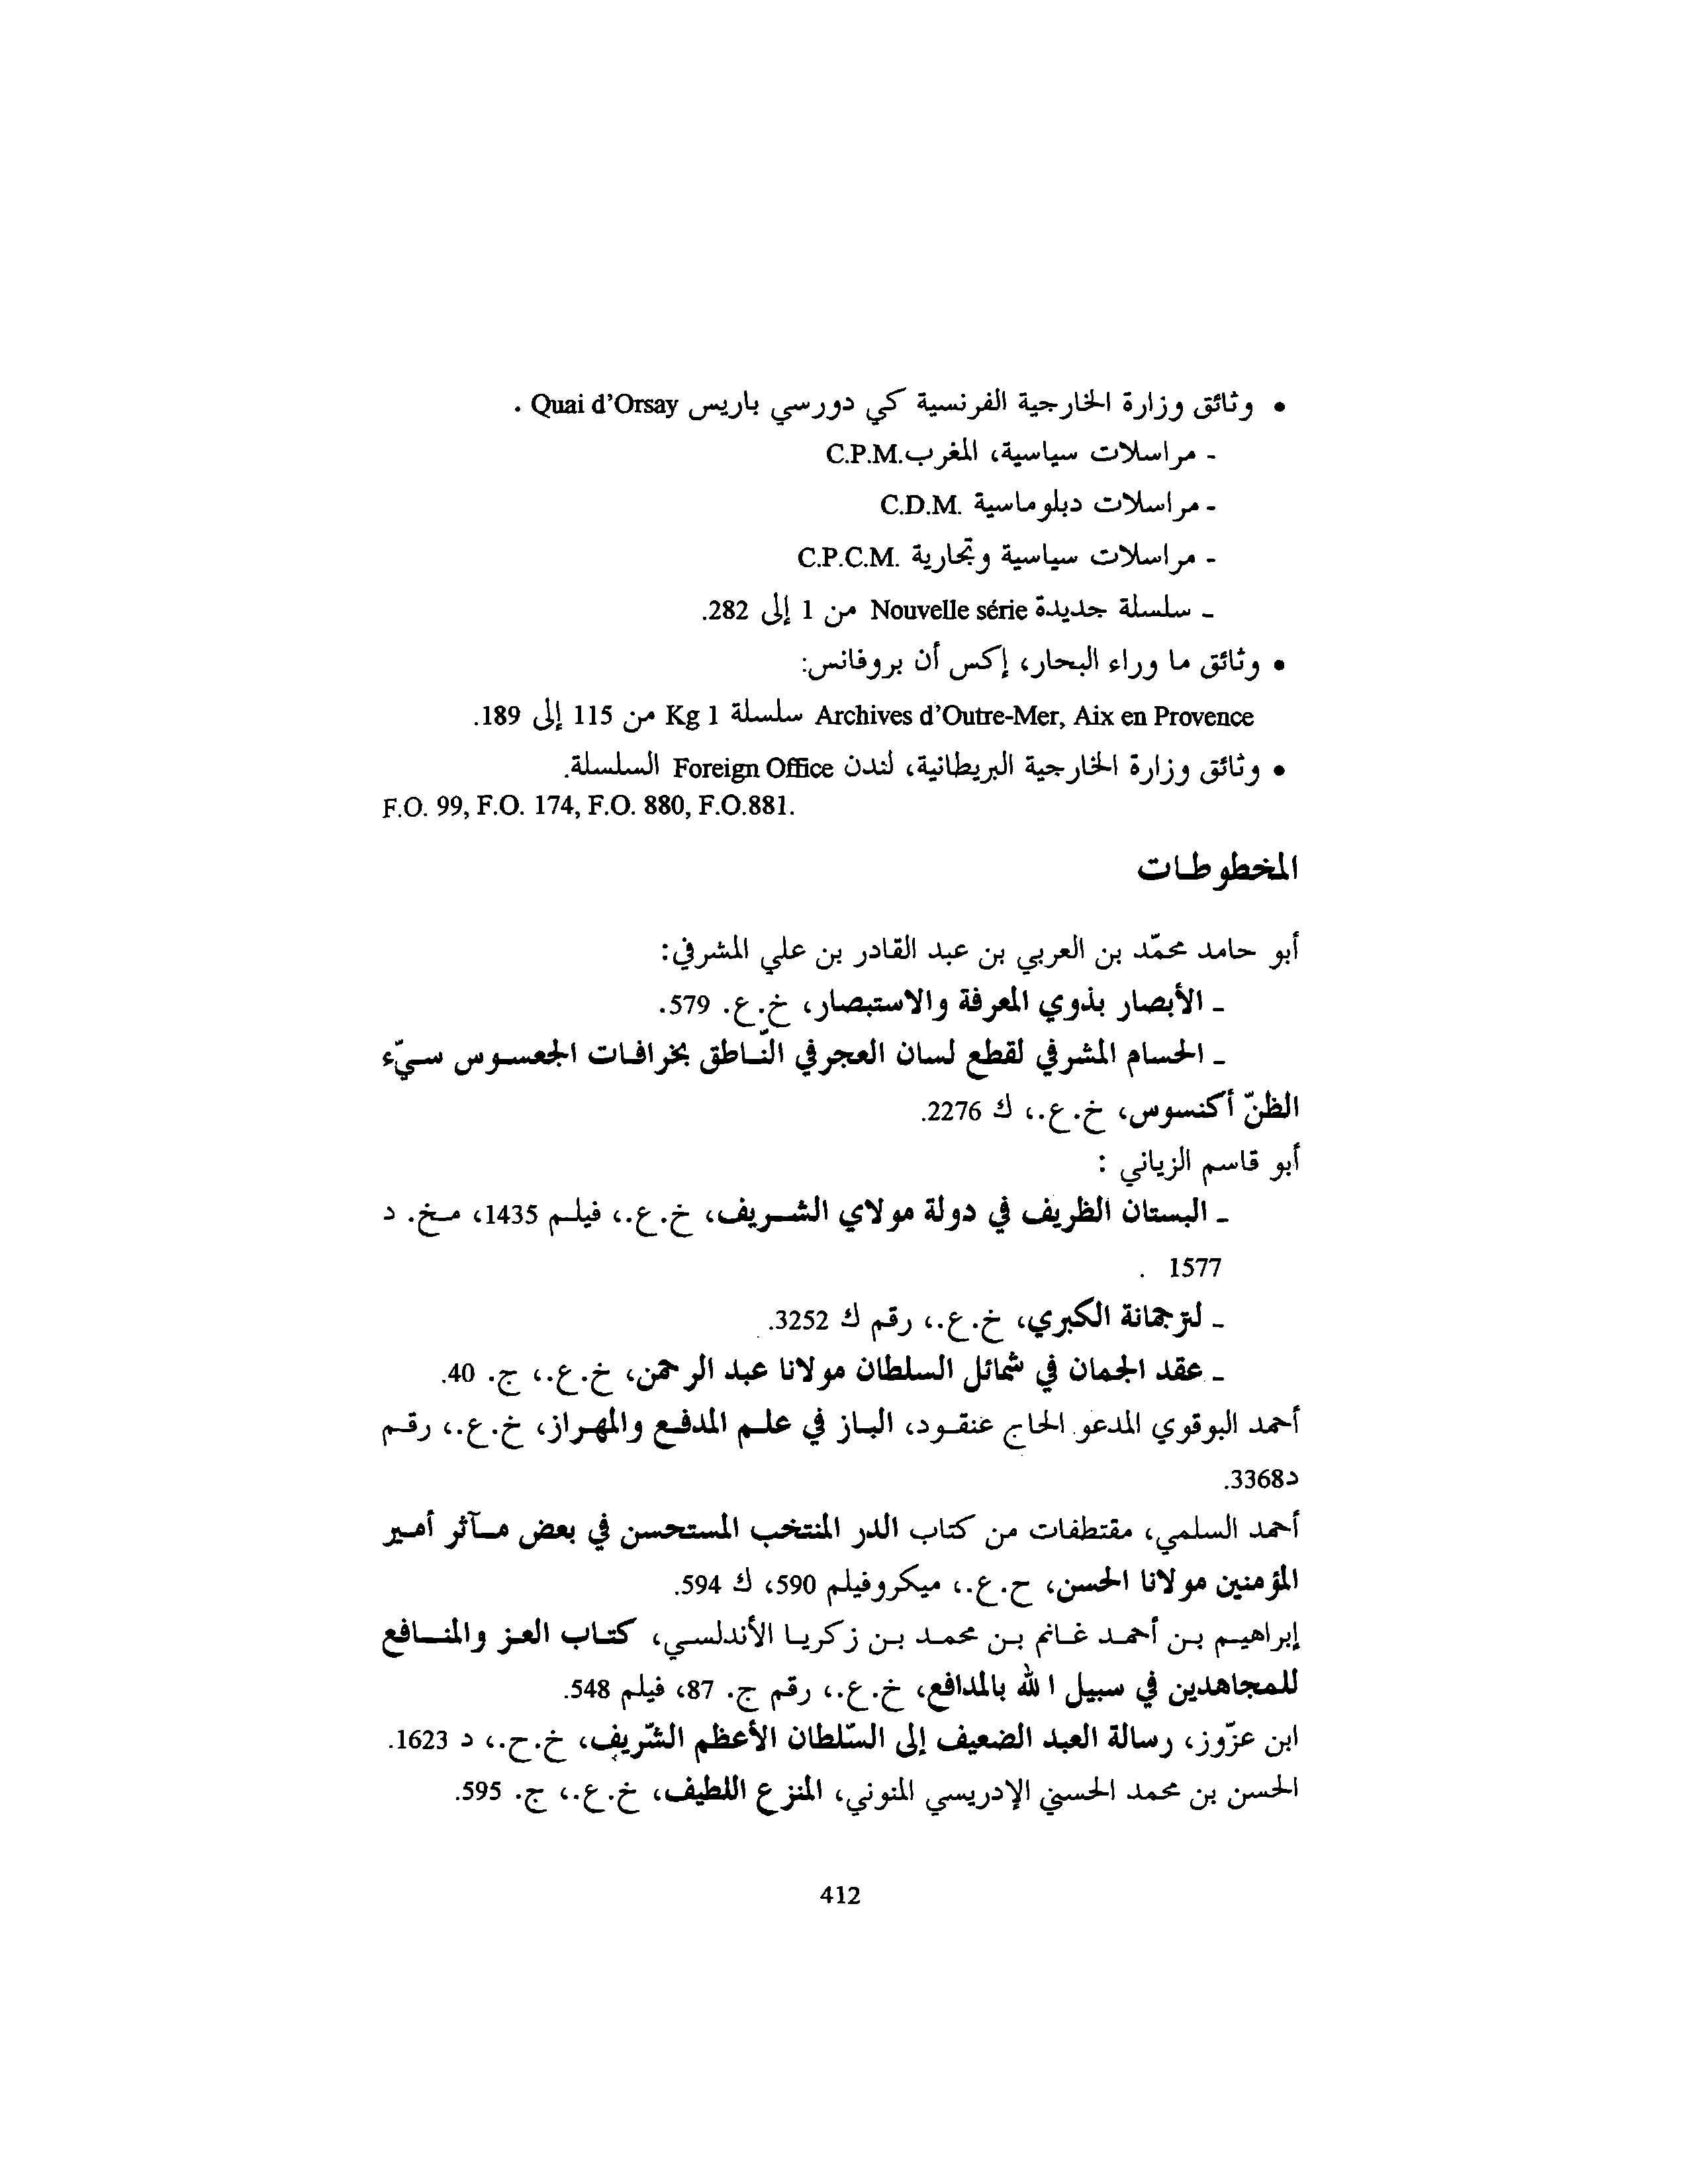 • وثائق وزارة الخارجية الفرنسية كي دورسي باريس Quai d’Orsay .
- مراسلات سياسية، المغرب.C.P.M
- مراسلات دبلوماسية .C.D.M
- مراسلات سياسية وتجارية .C.P.C.M
- سلسلة جديدة Nouvelle série من 1 إلى 282.
• وثائق ما وراء البحار، إكس أن بروفانس:
Archives d’Outre-Mer, Aix en Provence سلسلة Kg 1 من 115 إلى 189.
• وثائق وزارة الخارجية البريطانية، لندن Foreign Office السلسلة.
F.O. 99, F.O. 174, F.O. 880, F.O.881.
المخطوطات
أبو حامد محمّد بن العربي بن عبد القادر بن علي المشرفي:
- الأبصار بذوي المعرفة والاستبصار، خ.ع. 579.
- الحسام المشرفي لقطع لسان العجرفي النّاطق بخرافات الجعسوس سيّء
الظنّ أكنسوس، خ.ع.، ك 2276.
أبو قاسم الزياني :
- البستان الظريف في دولة مولاي الشريف، خ.ع.، فيلم 1435، مخ. د
1577 .
- لترجمانة الكبري، خ.ع.، رقم ك 3252.
- عقد الجمان في شمائل السلطان مولانا عبد الرحمن، خ.ع.، ج. 40.
أحمد البوقوي المدعو الحاج عنقود، الباز في علم المدفع والمهراز، خ.ع.، رقم
د3368.
أحمد السلمي، مقتطفات من كتاب الدر المنتخب المستحسن في بعض مآثر أمير
المؤمنين مولانا الحسن، ح.ع.، ميكروفيلم 590، ك 594.
إبراهيم بن أحمد غانم بن محمد بن زكريا الأندلسي، كتاب العز والمنافع
للمجاهدين في سبيل الله بالمدافع، خ.ع.، رقم ج. 87، فيلم 548.
ابن عزّوز، رسالة العبد الضعيف إلى السّلطان الأعظم الشّريف، خ.ح.، د 1623.
الحسن بن محمد الحسني الإدريسي المنوني، المنزع اللطيف، خ.ع.، ج. 595.
412